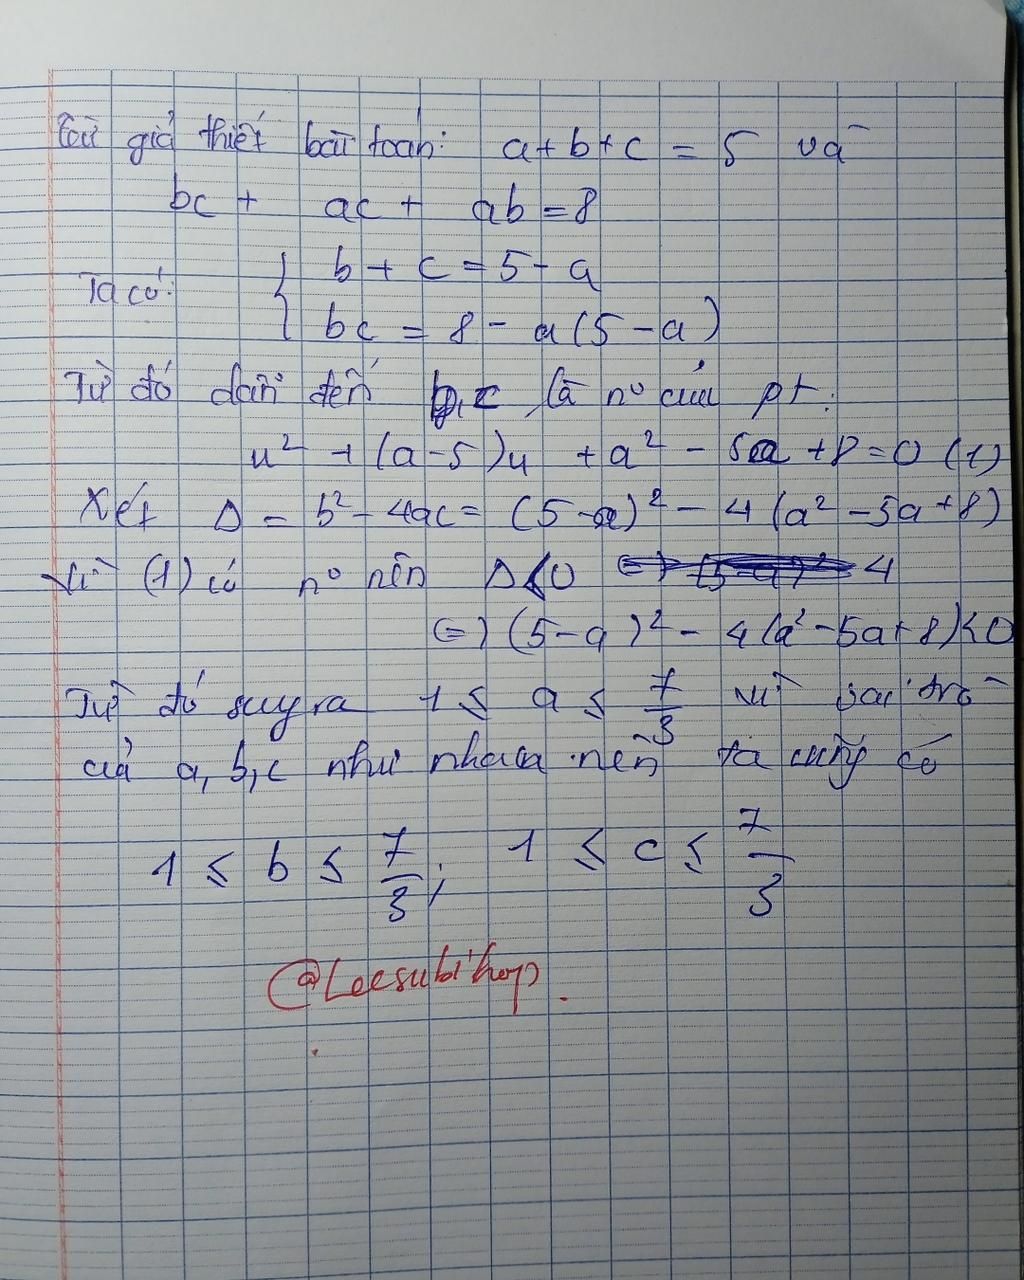 Từ giả thiết bài toán: a + b + c = 5 và
bc + ac + ab = 8
Ta có: { b + c = 5 - a
bc = 8 - a(5 - a)
Từ đó dẫn đến b, c là n⁰ của pt:
u² + (a-5)u + a² - 5a + 8 = 0 (1)
Xét Δ = b² - 4ac = (5-a)² - 4(a² - 5a + 8)
Vì (1) có n⁰ nên Δ < 0 4
(=) (5-a)² - 4(a² - 5a + 8) < 0
Từ đó suy ra 1 ≤ a ≤ 7/3 vì vai trò
của a, b, c như nhau nên ta cũng có
1 ≤ b ≤ 7/3; 1 ≤ c ≤ 7/3